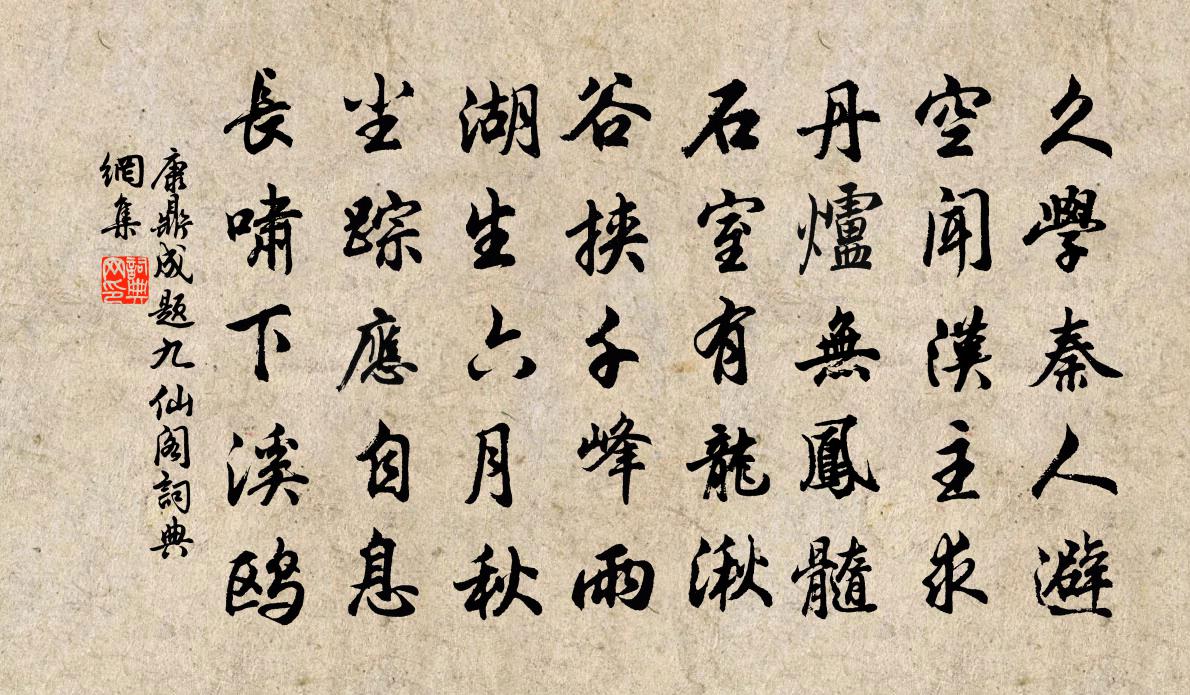 久學秦人避
空聞漢主求
丹爐無鳳髓
石室有龍湫
谷挾千峰雨
湖生六月秋
坐踪應自息
長嘯下溪鸥
康鼎成題九仙阁詞典
網集
詞典
网印